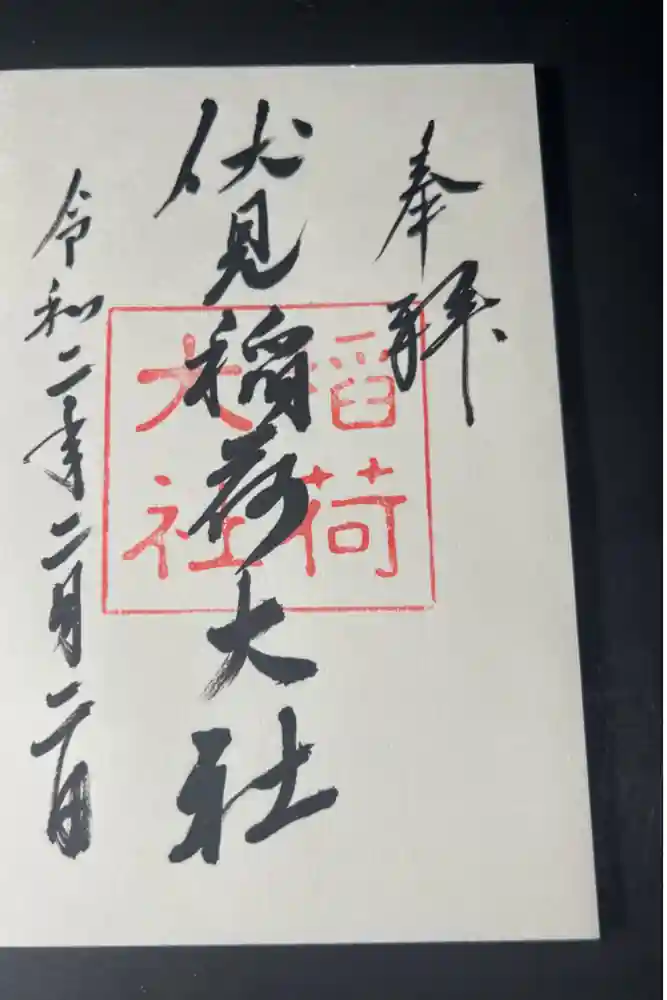 奉拝
伏見稲荷大社
稲荷
大社
令和二年二月二日